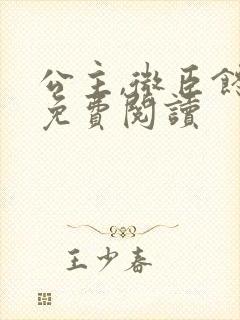 公主,微臣餓
免費閱讀
王少春